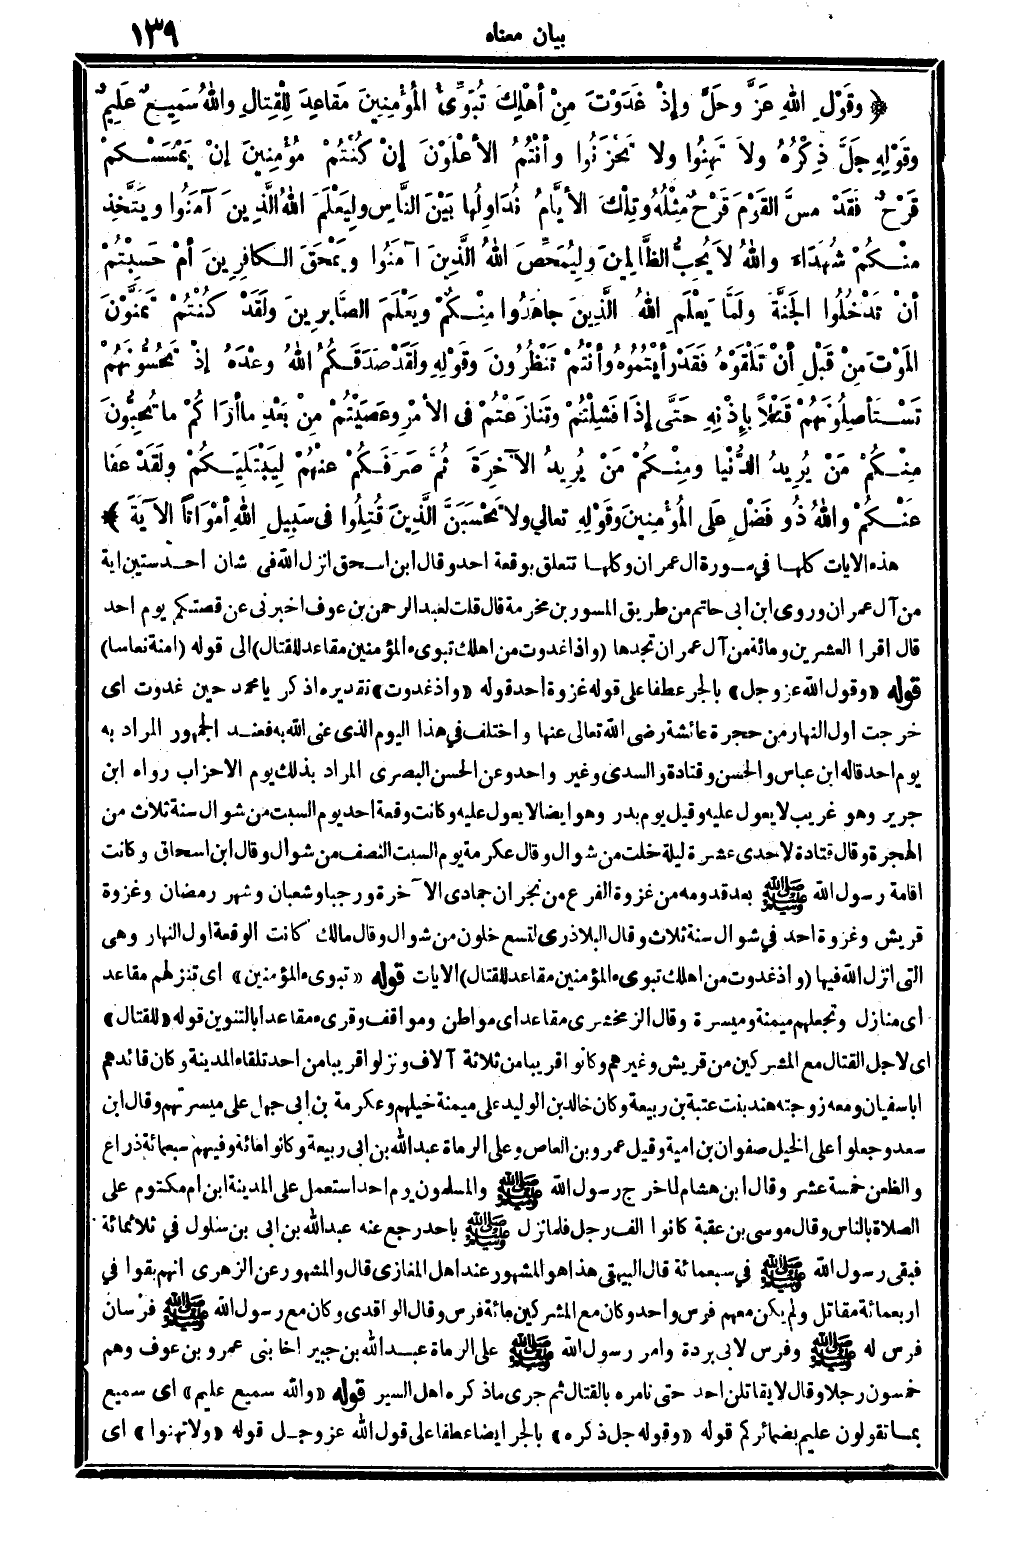 بيان معناه
١٣٩
﴿ وقَوْلِ اللهِ عَزَّ وجَلَّ وإذْ غَدَوْتَ مِنْ أهْلِكَ تُبَوِّئُ المُؤْمِنِينَ مَقاعِدَ لِلْقِتالِ واللهُ سَمِيعٌ عَلِيمٌ
وقَوْلِهِ جَلَّ ذِكْرُهُ ولاَ تَهِنُوا ولا تَحْزَنُوا وأنْتُمُ الأعْلَوْنَ إنْ كُنْتُمْ مُؤْمِنِينَ إنْ يَمْسَسْكُمْ
قَرْحٌ فَقَدْ مسَّ القَوْمَ قَرْحٌ مِثْلُهُ وتِلْكَ الأيَّامُ نُدَاوِلُها بَيْنَ النَّاسِ ولِيَعْلَمَ اللهُ الَّذِينَ آمَنُوا ويَتَّخِذ
مِنْكُمْ شُهَدَاءَ واللهُ لاَ يُحِبُّ الظَّالِمِنَ ولِيُمَحِّصَ اللهُ الَّذِينَ آمَنُوا ويَمْحَقَ الكافِرِينَ أمْ حَسِبْتُمْ
أنْ تَدْخُلُوا الجَنَّةَ ولَمَّا يَعْلَمِ اللهُ الَّذِينَ جاهَدُوا مِنْكُمْ ويَعْلَمَ الصَّابِرِينَ ولَقَدْ كُنْتُمْ تَمَنَّوْنَ
المَوْتَ مِنْ قَبْلِ أنْ تَلْقَوْهُ فَقَدْ رأيْتُمُوهُ وأنْتُمْ تَنْظُرُونَ وقَوْلِهِ ولَقَدْ صَدَقَكُمُ اللهُ وعْدَهُ إذْ تَحُسُّونَهُمْ
تَسْتَأصِلُونَهُمْ قَتْلاً بِإذْنِهِ حَتَّى إذَا فَشِلْتُمْ وتَنازَعْتُمْ فى الأمْرِ وعَصَيْتُمْ مِنْ بَعْدِ ما أرَاكُمْ ما تُحِبُّونَ
مِنْكُمْ مَنْ يُرِيدُ الدُّنْيا ومِنْكُمْ مَنْ يُرِيدُ الآخِرَةَ ثُمَّ صَرَفَكُمْ عَنْهُمْ لِيَبْتَلِيَكُمْ ولَقَدْ عَفا
عَنْكُمْ واللهُ ذُو فَضْلٍ عَلَى المُؤْمِنِينَ وقَوْلِهِ تعالي ولا تَحْسَبَنَّ الَّذِينَ قُتِلُوا فى سَبِيلِ اللهِ أمْوَاتاً الآيَةَ ﴾
هذه الآيات كلها في سورة ال عمران وكلها تتعلق بوقعة احد وقال ابن اسحق انزل الله فى شان احد ستين اية
من آل عمران وروى ابن ابى حاتم من طريق المسور بن مخرمة قال قلت لعبد الرحمن بن عوف اخبرنى عن قصتكم يوم احد
قال اقرا العشرين ومائة من آل عمران تجدها (واذ غدوت من اهلك تبوىء المؤمنين مقاعد للقتال) الى قوله (امنة نعاسا)
قوله «وقول الله عز وجل» بالجر عطفا على قوله غزوة احد قوله «واذ غدوت» تقديره اذكر يا محمد حين غدوت اى
خرجت اول النهار من حجرة عائشة رضى الله تعالى عنها واختلف في هذا اليوم الذى عنى الله به فعند الجمهور المراد به
يوم احد قاله ابن عباس والحسن وقتادة والسدى وغير واحد وعن الحسن البصرى المراد بذلك يوم الاحزاب رواه ابن
جرير وهو غريب لا يعول عليه وقيل يوم بدر وهو ايضا لا يعول عليه وكانت وقعة احد يوم السبت من شوال سنة ثلاث من
الهجرة وقال قتادة لاحدى عشرة ليلة خلت من شوال وقال عكرمة يوم السبت النصف من شوال وقال ابن اسحاق وكانت
اقامة رسول الله ﷺ بعد قدومه من غزوة الفرع من نجران جمادى الآخرة ورجبا وشعبان وشهر رمضان وغزوة
قريش وغزوة احد في شوال سنة ثلاث وقال البلاذرى لتسع خلون من شوال وقال مالك كانت الوقعة اول النهار وهى
التى انزل الله فيها (واذ غدوت من اهلك تبوىء المؤمنين مقاعد للقتال) الآيات قوله «تبوىء المؤمنين» اى تنزلهم مقاعد
اى منازل وتجعلهم ميمنة وميسرة وقال الزمخشرى مقاعد اى مواطن ومواقف وقرىء مقاعدا بالتنوين قوله «للقتال»
اى لاجل القتال مع المشركين من قريش وغيرهم وكانوا قريبا من ثلاثة آلاف ونزلوا قريبا من احد تلقاء المدينة وكان قائدهم
ابا سفيان ومعه زوجته هند بنت عتبة بن ربيعة وكان خالد بن الوليد على ميمنة خيلهم وعكرمة بن ابى جهل على ميسرتهم وقال ابن
سعد وجعلوا على الخيل صفوان بن امية وقيل عمرو بن العاص وعلى الرماة عبد الله بن ابى ربيعة وكانوا مائة وفيهم سبعمائة ذراع
والظعن خمسة عشر وقال ابن هشام لما خرج رسول الله ﷺ والمسلمون يوم احد استعمل على المدينة ابن ام مكتوم على
الصلاة بالناس وقال موسى بن عقبة كانوا الف رجل فلما نزل ﷺ باحد رجع عنه عبد الله بن ابى بن سلول في ثلاثمائة
فبقى رسول الله ﷺ في سبعمائة قال البيهقى هذا هو المشهور عند اهل المغازى قال والمشهور عن الزهرى انهم بقوا في
اربعمائة مقاتل ولم يكن معهم فرس واحد وكان مع المشركين مائة فرس وقال الواقدى وكان مع رسول الله ﷺ فرسان
فرس له ﷺ وفرس لابى بردة وامر رسول الله ﷺ على الرماة عبد الله بن جبير اخا بنى عمرو بن عوف وهم
خمسون رجلا وقال لا يقاتلن احد حتى نامره بالقتال ثم جرى ما ذكره اهل السير قوله «والله سميع عليم» اى سميع
بما تقولون عليم بضمائركم قوله «وقوله جل ذكره» بالجر ايضا عطفا على قول الله عز وجل قوله «ولا تهنوا» اى